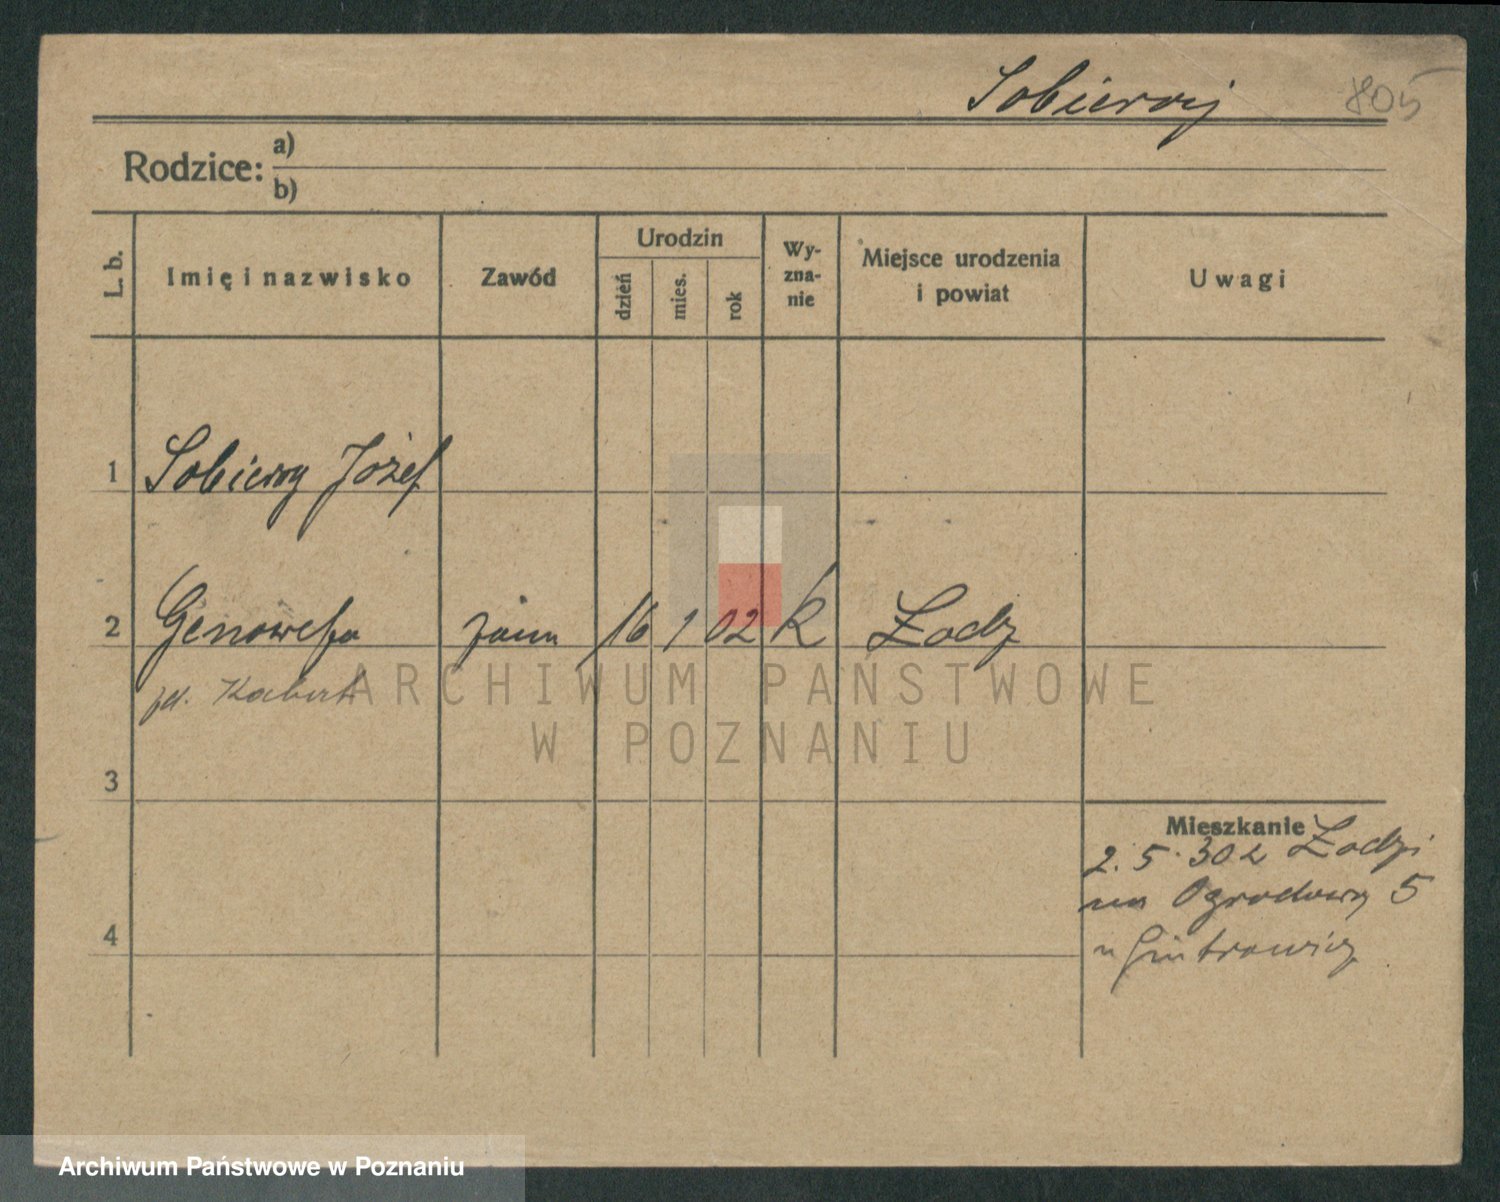 Sobieraj 805
Rodzice: a)
b)
L. b.
Imię i nazwisko
Zawód
Urodzin
dzień
mies.
rok
Wy-
zna-
nie
Miejsce urodzenia
i powiat
Uwagi
1 Sobieraj Józef
2 Genowefa żona 16 1 02 k Łodz
zd. Kabert
3
4
Mieszkanie
2.5.30 z Łodzi
na Ogrodową 5
u
ARCHIWUM PAŃSTWOWE
W POZNANIU
Archiwum Państwowe w Poznaniu